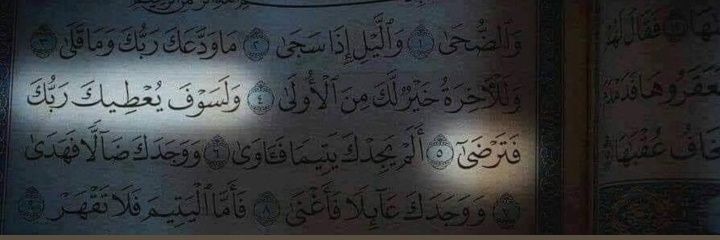 وَٱلضُّحَىٰ ١ وَٱلَّيْلِ إِذَا سَجَىٰ ٢ مَا وَدَّعَكَ رَبُّكَ وَمَا قَلَىٰ ٣
وَلَلْأَخِرَةُ خَيْرٌ لَّكَ مِنَ ٱلْأُولَىٰ ٤ وَلَسَوْفَ يُعْطِيكَ رَبُّكَ
فَتَرْضَىٰٓ ٥ أَلَمْ يَجِدْكَ يَتِيمًا فَـَٔاوَىٰ ٦ وَوَجَدَكَ ضَآلًّا فَهَدَىٰ
٧ وَوَجَدَكَ عَآئِلًا فَأَغْنَىٰ ٨ فَأَمَّا ٱلْيَتِيمَ فَلَا تَقْهَرْ ٩
فَقَالَ لَهُمْ
فَعَقَرُوهَا
يَخَافُ عُقْبَٰهَا